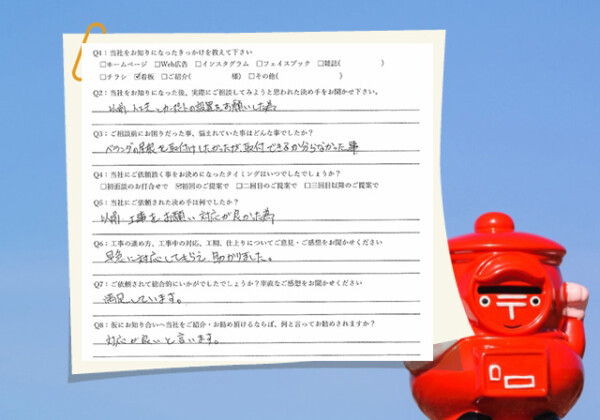 Q1：当社をお知りになったきっかけを教えて下さい
□ホームページ □Web広告 □インスタグラム □フェイスブック □雑誌( )
□チラシ ☑看板 □ご紹介( 様) □その他( )
Q2：当社をお知りになった後、実際にご相談してみようと思われた決め手をお聞かせ下さい。
以前 カーポートの設置をお願いした為
Q3：ご相談前にお困りだった事、悩まれていた事はどんな事でしたか？
ベランダの屋根を取付けしたかったが、取付できるか分らなかった事
Q4：当社にご依頼頂く事をお決めになったタイミングはいつでしたでしょうか？
□初面談のお打合せで ☑初回のご提案で □二回目のご提案で □三回目以降のご提案で
Q5：当社にご依頼された決め手は何でしたか？
以前 工事をお願い 対応が良かった為
Q6：工事の進め方、工事中の対応、工期、仕上りについてご意見・ご感想をお聞かせください
早急に対応してもらえ 助かりました。
Q7：ご依頼されて総合的にいかがでしたでしょうか？率直なご感想をお聞かせください
満足しています。
Q8：仮にお知り合いへ当社をご紹介・お勧め頂けるならば、何と言ってお勧めされますか？
対応が良いと言います。